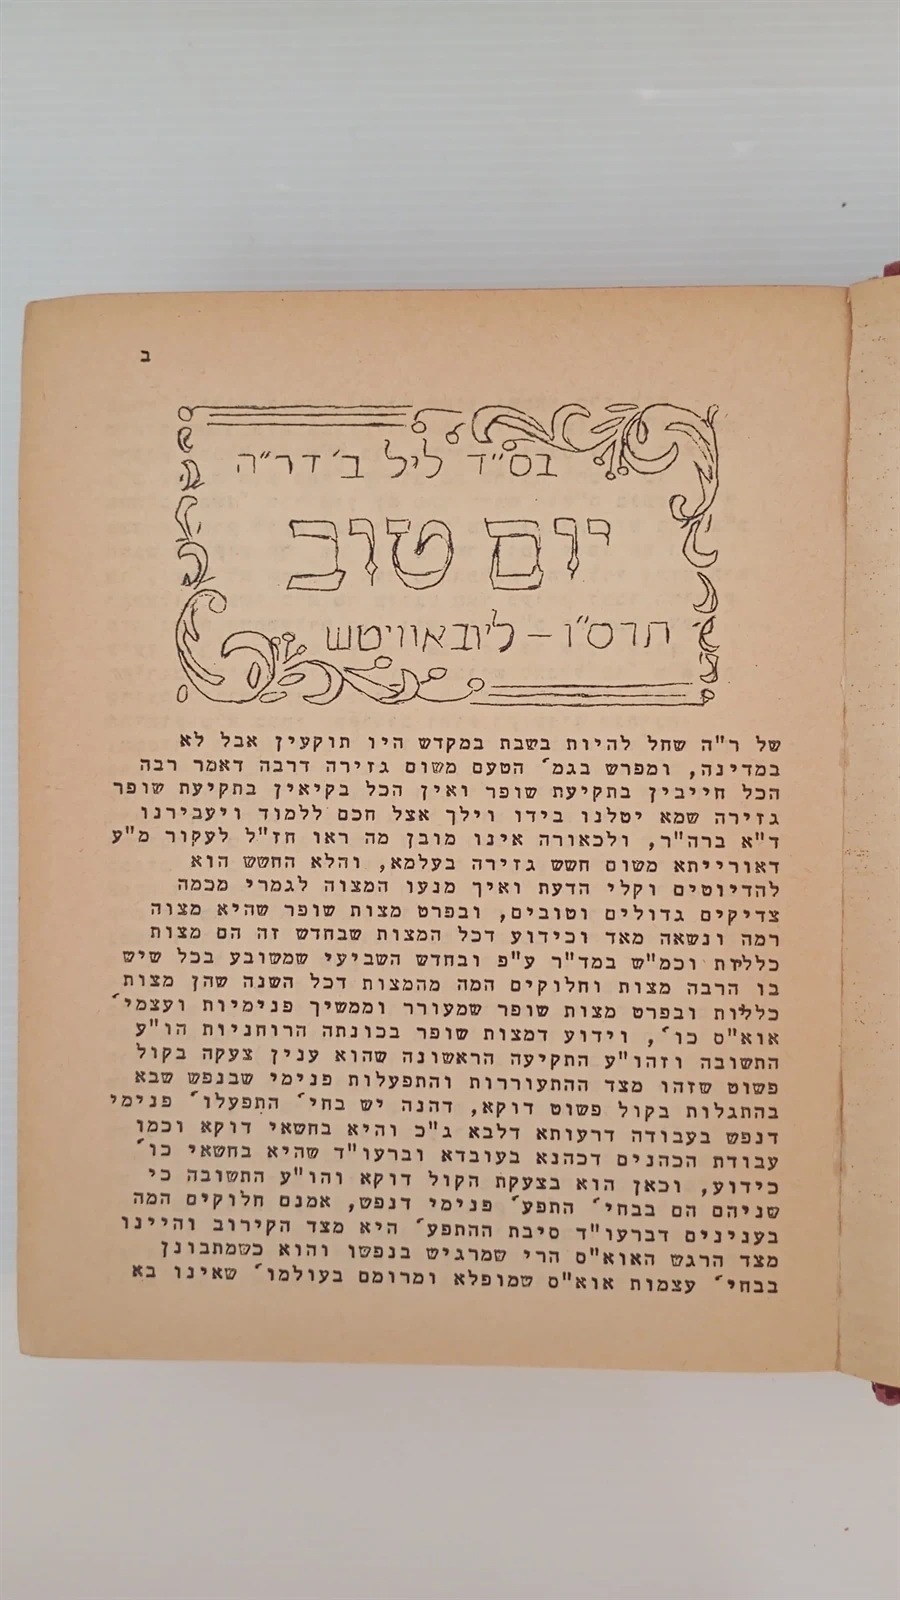 ב
בס"ד ליל ב' דר"ה
יום טוב
תרס"ו - ליובאוויטש
של ר"ה שחל להיות בשבת במקדש היו תוקעין אבל לא
במדינה, ומפרש בגמ' הטעם משום גזירה דרבה דאמר רבה
הכל חייבין בתקיעת שופר ואין הכל בקיאין בתקיעת שופר
גזירה שמא יטלנו בידו וילך אצל חכם ללמוד ויעבירנו
ד"א ברה"ר, ולכאורה אינו מובן מה ראו חז"ל לעקור מ"ע
דאורייתא משום חשש גזירה בעלמא, והלא החשש הוא
להדיוטים וקלי הדעת ואיך מנעו המצוה לגמרי מכמה
צדיקים גדולים וטובים, ובפרט מצות שופר שהיא מצוה
רמה ונשאה מאד וכידוע דכל המצות שבחדש זה הם מצות
כלליות וכמ"ש במד"ר ע"פ ובחדש השביעי שמשובע בכל שיש
בו הרבה מצות וחלוקים המה מהמצות דכל השנה שהן מצות
כלליות ובפרט מצות שופר שמעורר וממשיך פנימיות ועצמי'
אוא"ס כו', וידוע דמצות שופר בכונתה הרוחניות הו"ע
התשובה וזהו"ע התקיעה הראשונה שהוא ענין צעקה בקול
פשוט שזהו מצד ההתעוררות והתפעלות פנימי שבנפש שבא
בהתגלות בקול פשוט דוקא, דהנה יש בחי' התפעלו' פנימי
דנפש בעבודה דרעותא דלבא ג"כ והיא בחשאי דוקא וכמו
עבודת הכהנים דכהנא בעובדא וברעו"ד שהיא בחשאי כו'
כידוע, וכאן הוא בצעקת הקול דוקא והו"ע התשובה כי
שניהם הם בבחי' התפע' פנימי דנפש, אמנם חלוקים המה
בענינים דברעו"ד סיבת ההתפע' היא מצד הקירוב והיינו
מצד הרגש האוא"ס הרי שמרגיש בנפשו והוא כשמתבונן
בבחי' עצמות אוא"ס שמופלא ומרומם בעולמו' שאינו בא